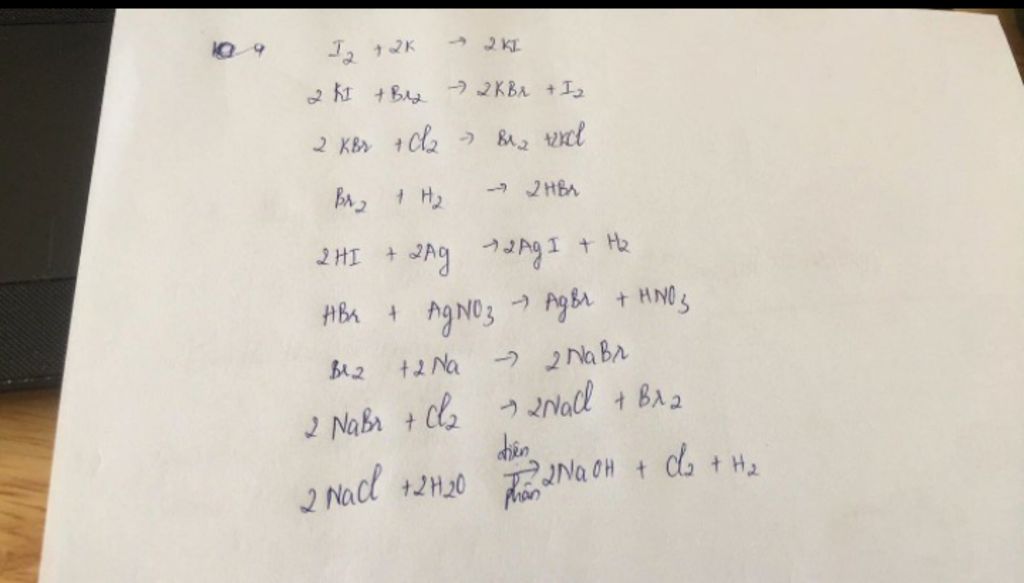 9 I₂ + 2K → 2KI
2 KI + Br₂ → 2KBr + I₂
2 KBr + Cl₂ → Br₂ + 2KCl
Br₂ + H₂ → 2HBr
2HI + 2Ag → 2AgI + H₂
HBr + AgNO₃ → AgBr + HNO₃
Br₂ + 2Na → 2NaBr
2 NaBr + Cl₂ → 2NaCl + Br₂
2 NaCl + 2H₂O điện phân → 2NaOH + Cl₂ + H₂